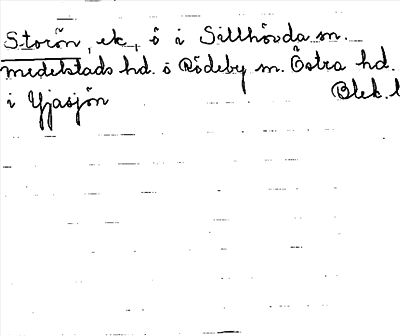 Storön, ek, ö i Sillhövda sn.
medelstads hd. ö Rödeby sn. Östra hd.
i Yjasjön Blek. l